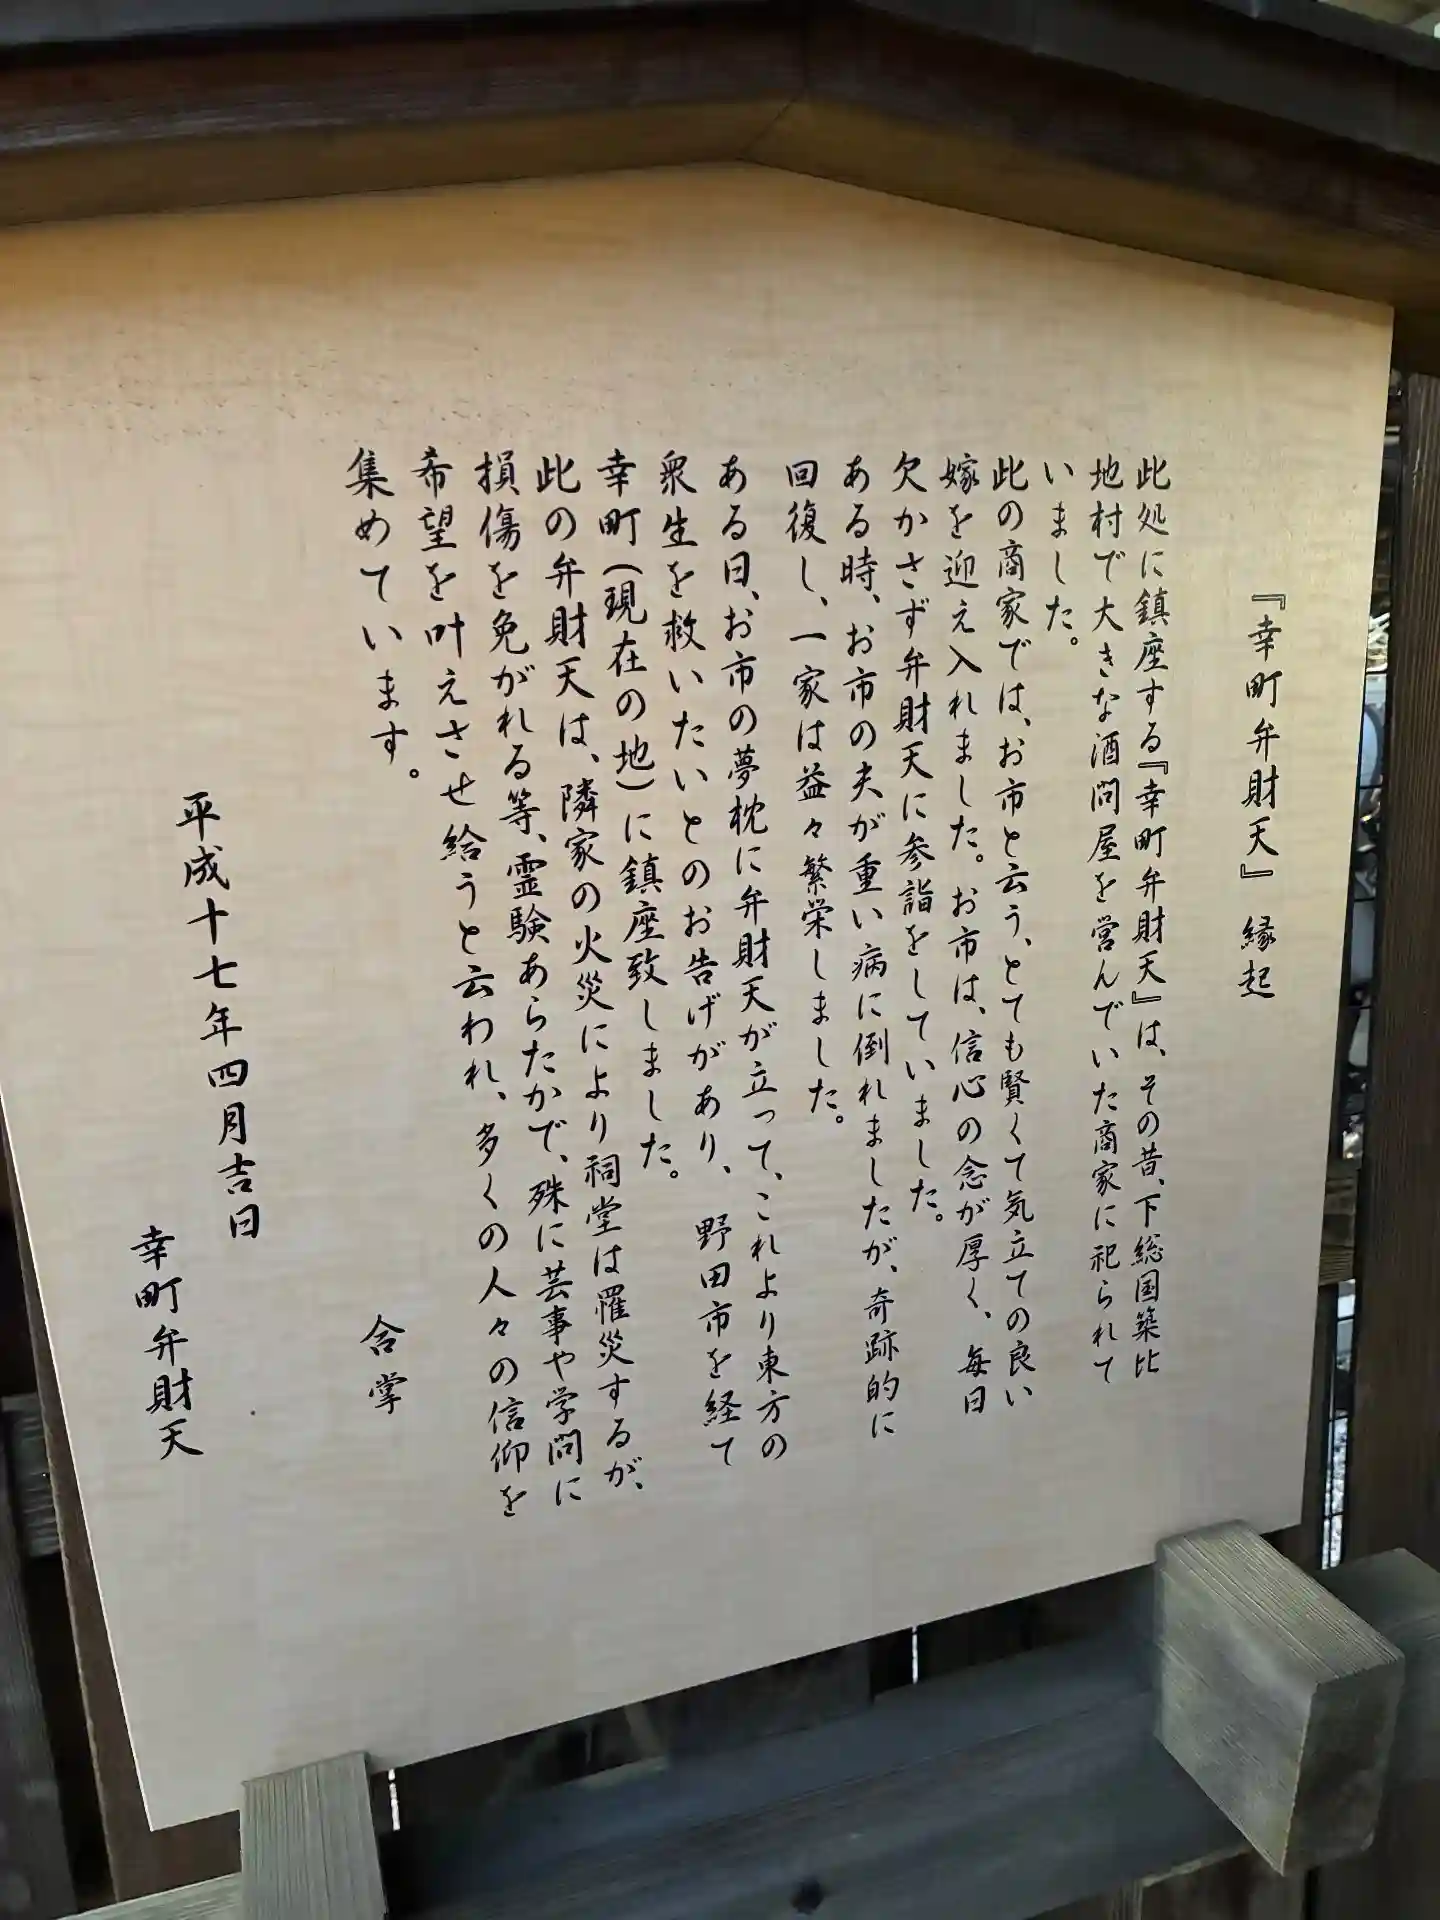 『幸町弁財天』 縁起
此処に鎮座する『幸町弁財天』は、その昔、下総国築比
地村で大きな酒問屋を営んでいた商家に祀られて
いました。
此の商家では、お市と云う、とても賢くて気立ての良い
嫁を迎え入れました。お市は、信心の念が厚く、毎日
欠かさず弁財天に参詣をしていました。
ある時、お市の夫が重い病に倒れましたが、奇跡的に
回復し、一家は益々繁栄しました。
ある日、お市の夢枕に弁財天が立って、これより東方の
衆生を救いたいとのお告げがあり、野田市を経て
幸町(現在の地)に鎮座致しました。
此の弁財天は、隣家の火災により祠堂は罹災するが、
損傷を免がれる等、霊験あらたかで、殊に芸事や学問に
希望を叶えさせ給うと云われ、多くの人々の信仰を
集めています。
合掌
平成十七年四月吉日
幸町弁財天